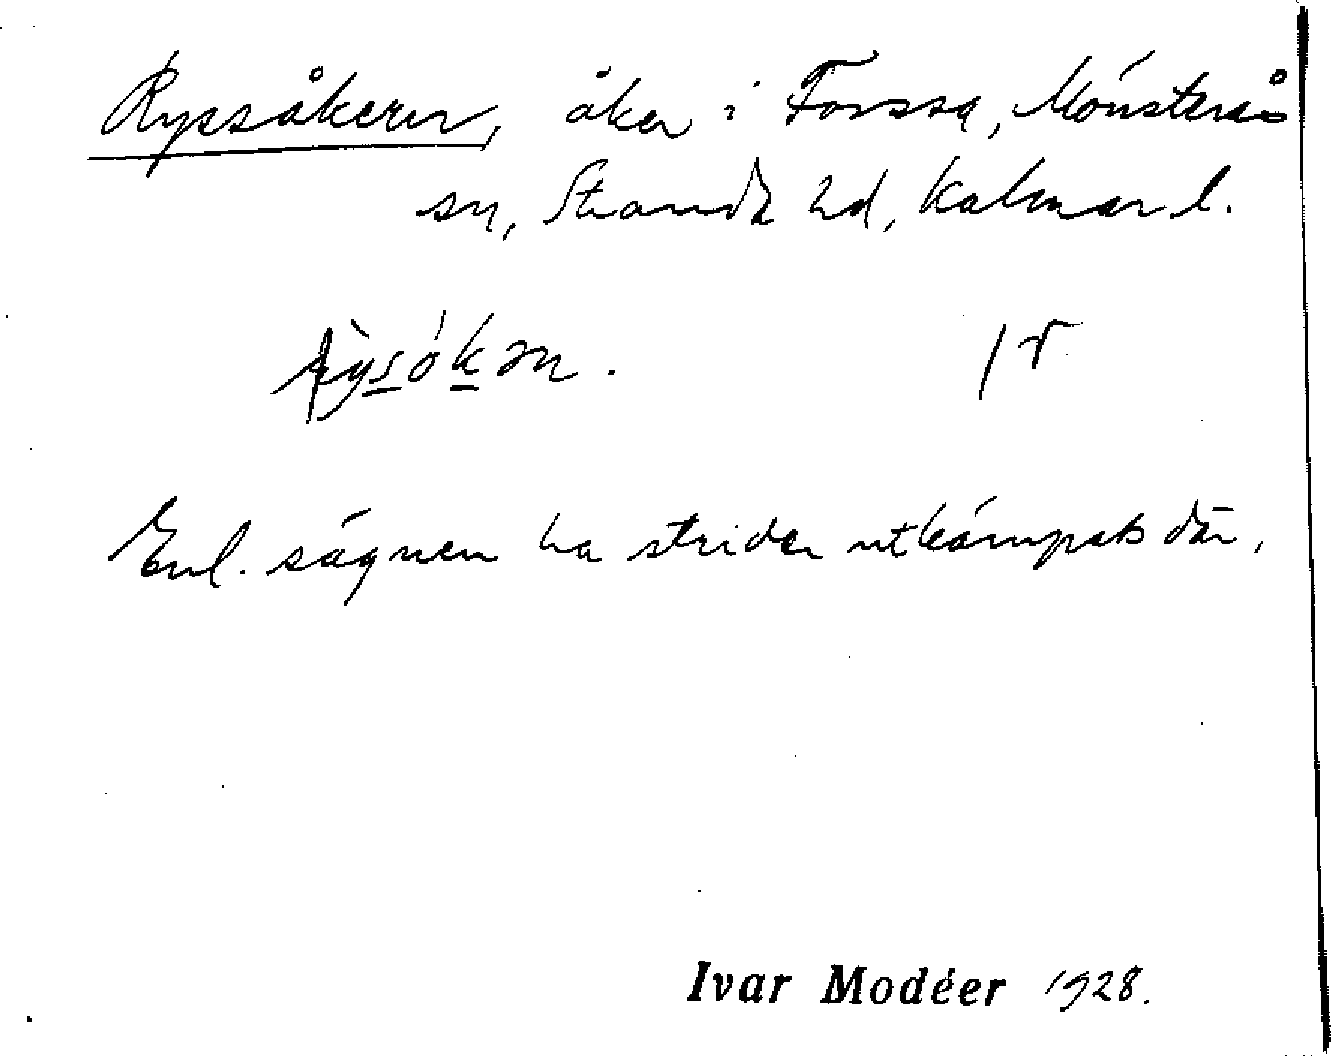 Ryssåkern, åker i Forssa, Mönsterås
sn, Stranda hd, Kalmar l.
Enl. sägnen ha strider utkämpats där.
Ivar Modéer 1928.